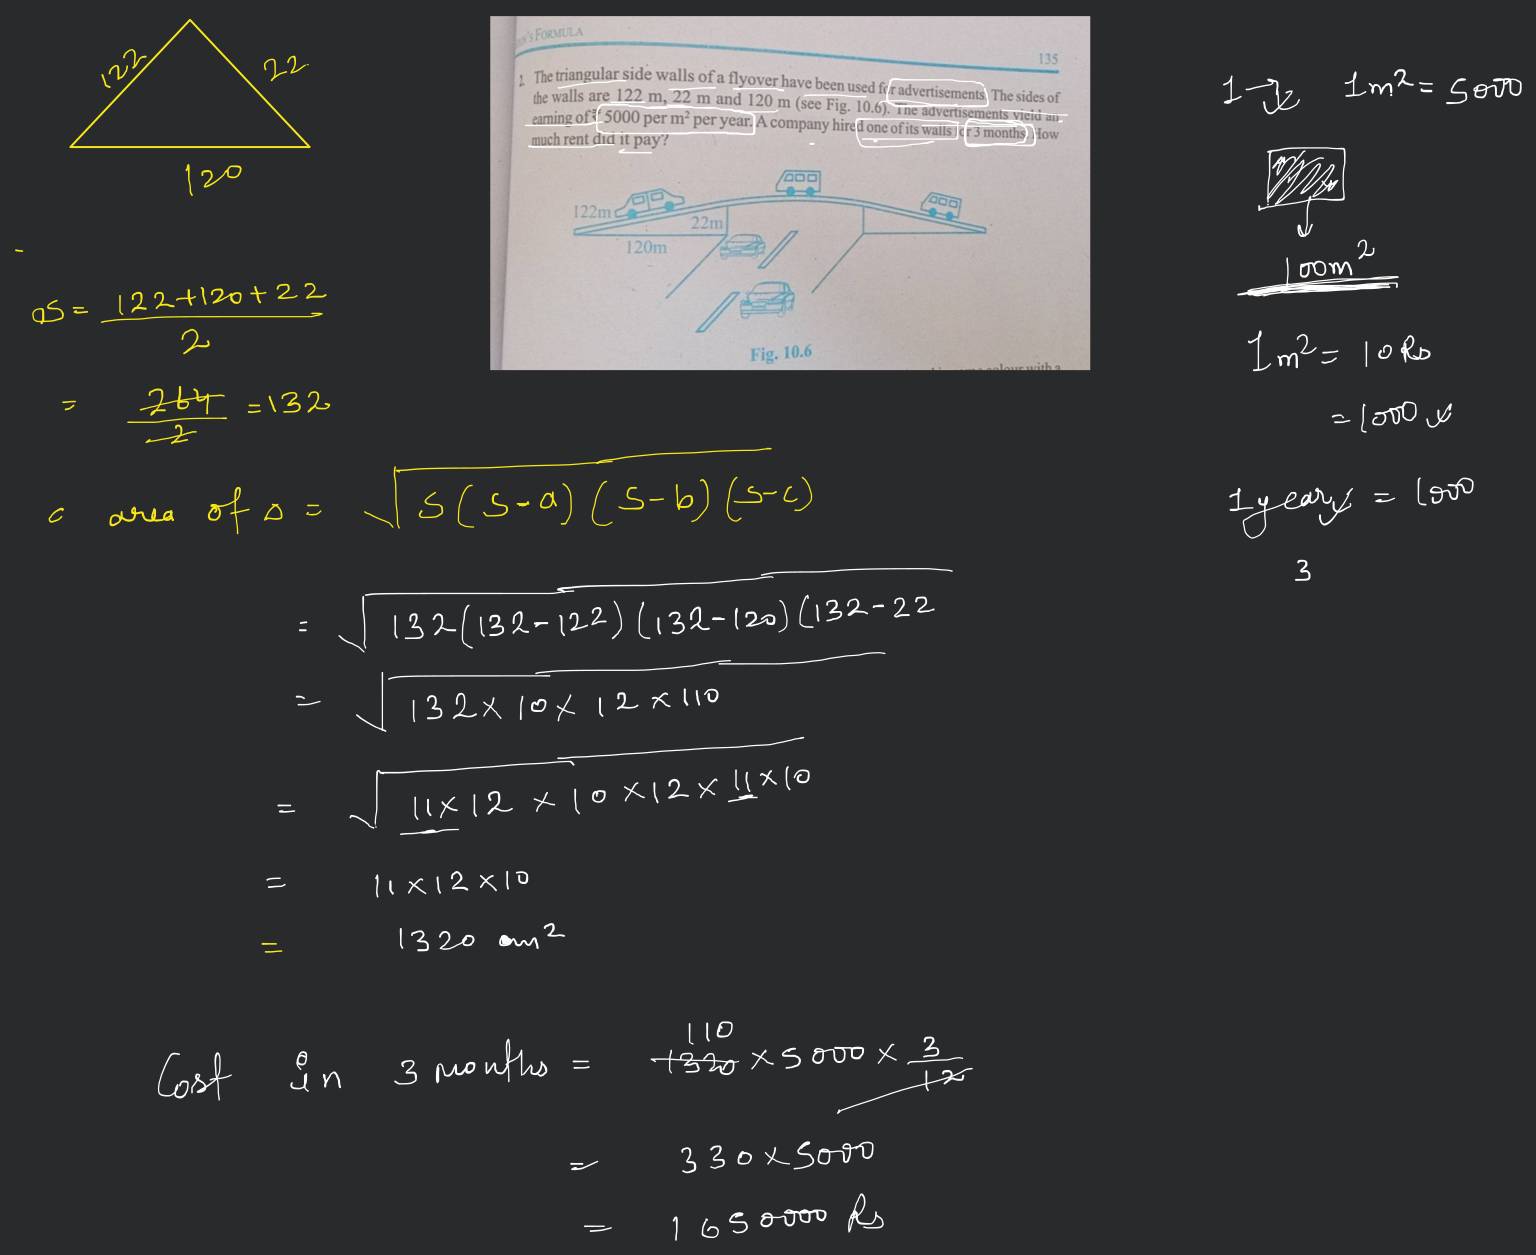 122
22
120
S = 122+120+22 / 2
= 264/2 = 132
area of Δ = √S(S-a)(S-b)(S-c)
= √132(132-122)(132-120)(132-22
= √132×10×12×110
= √11×12×10×12×11×10
= 11×12×10
= 1320 m²
Cost in 3 months = 110 1320 ×5000× 3/12
= 330×5000
= 1650000 Rs
FORMULA
135
The triangular side walls of a flyover have been used for advertisements. The sides of
the walls are 122 m, 22 m and 120 m (see Fig. 10.6). The advertisements yield an
earning of ₹ 5000 per m² per year. A company hired one of its walls for 3 months. How
much rent did it pay?
122m
22m
120m
Fig. 10.6
1m² = 5000
100m²
1m² = 10 Rs
= 1000
1 year = 1000
3